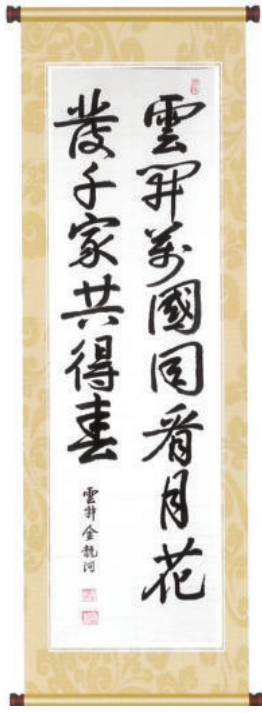 雲開萬國同看月花
發千家共得春
雲開金龍河